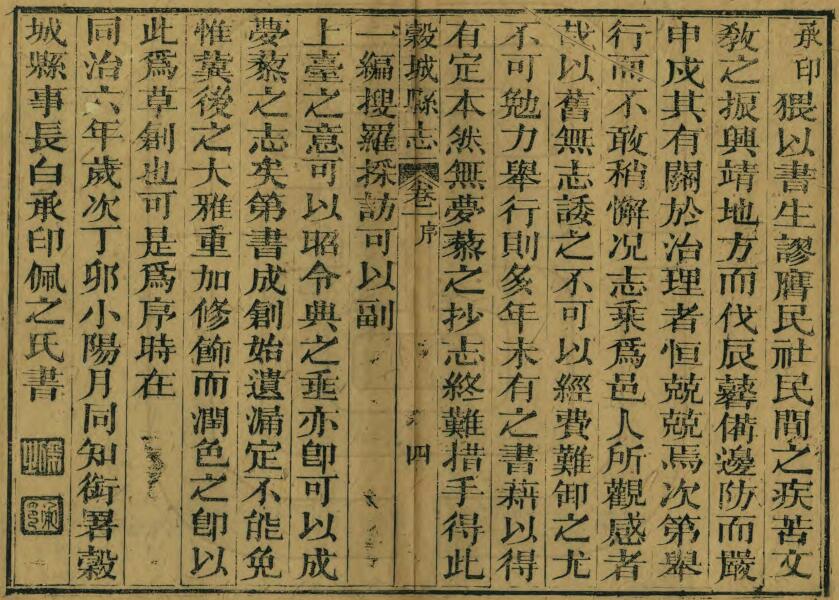 承印猥以書生謬膺民社民間之疾苦文
敎之振興靖地方而伐辰謩備邊防而嚴
申戍其有關於治理者恒兢兢焉次第舉
行而不敢稍懈况志乘爲邑人所觀感者
哉以舊無志諉之不可以經費難卸之尤
不可勉力舉行則多年未有之書藉以得
有定本然無夢蔾之抄志終難措手得此
榖城縣志 卷一 序 四
一編搜羅採訪可以副
上臺之意可以昭令典之垂亦卽可以成
夢蔾之志矣第書成創始遺漏定不能免
惟冀後之大雅重加修飾而潤色之卽以
此爲草創也可是爲序時在
同治六年歲次丁卯小陽月同知銜署榖
城縣事長白承印佩之氏書